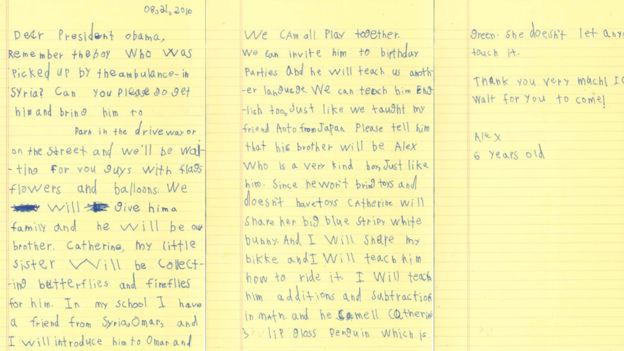 08.21.2010
Dear President obama,
Remember the boy who was
picked up by the ambulance in
Syria? Can you please go get
him and bring him to
Park in the driveway or
on the street and we'll be wai-
ting for you guys with flags
flowers and balloons. We
will give him a
family and he will be our
brother. Catherine, my little
sister will be collect-
ing butterflies and fireflies
for him. In my school I have
a friend from Syria, Omar, and
I will introduce him to Omar and
We CAn all Play together.
We can invite him to birthday
Parties And he will teach us anoth-
er language. We can teach him Eng-
lish too, Just like we taught my
friend Aoto from Japan Please tell him
that his brother will be Alex
Who is a very kind boy, Just like
him. Since he won't bring toys and
doesn't have toys Catherine will
share her big blue stripy white
bunny. And I Will share my
bikke and I Will teach him
how to ride it. I Will teach
him additions and subtraction
in math and he smell Catherine
lip gloss Penguin which is
green. She doesn't let any
touch it.
Thank you very much! I
wait for you to come!
Alex
6 years old